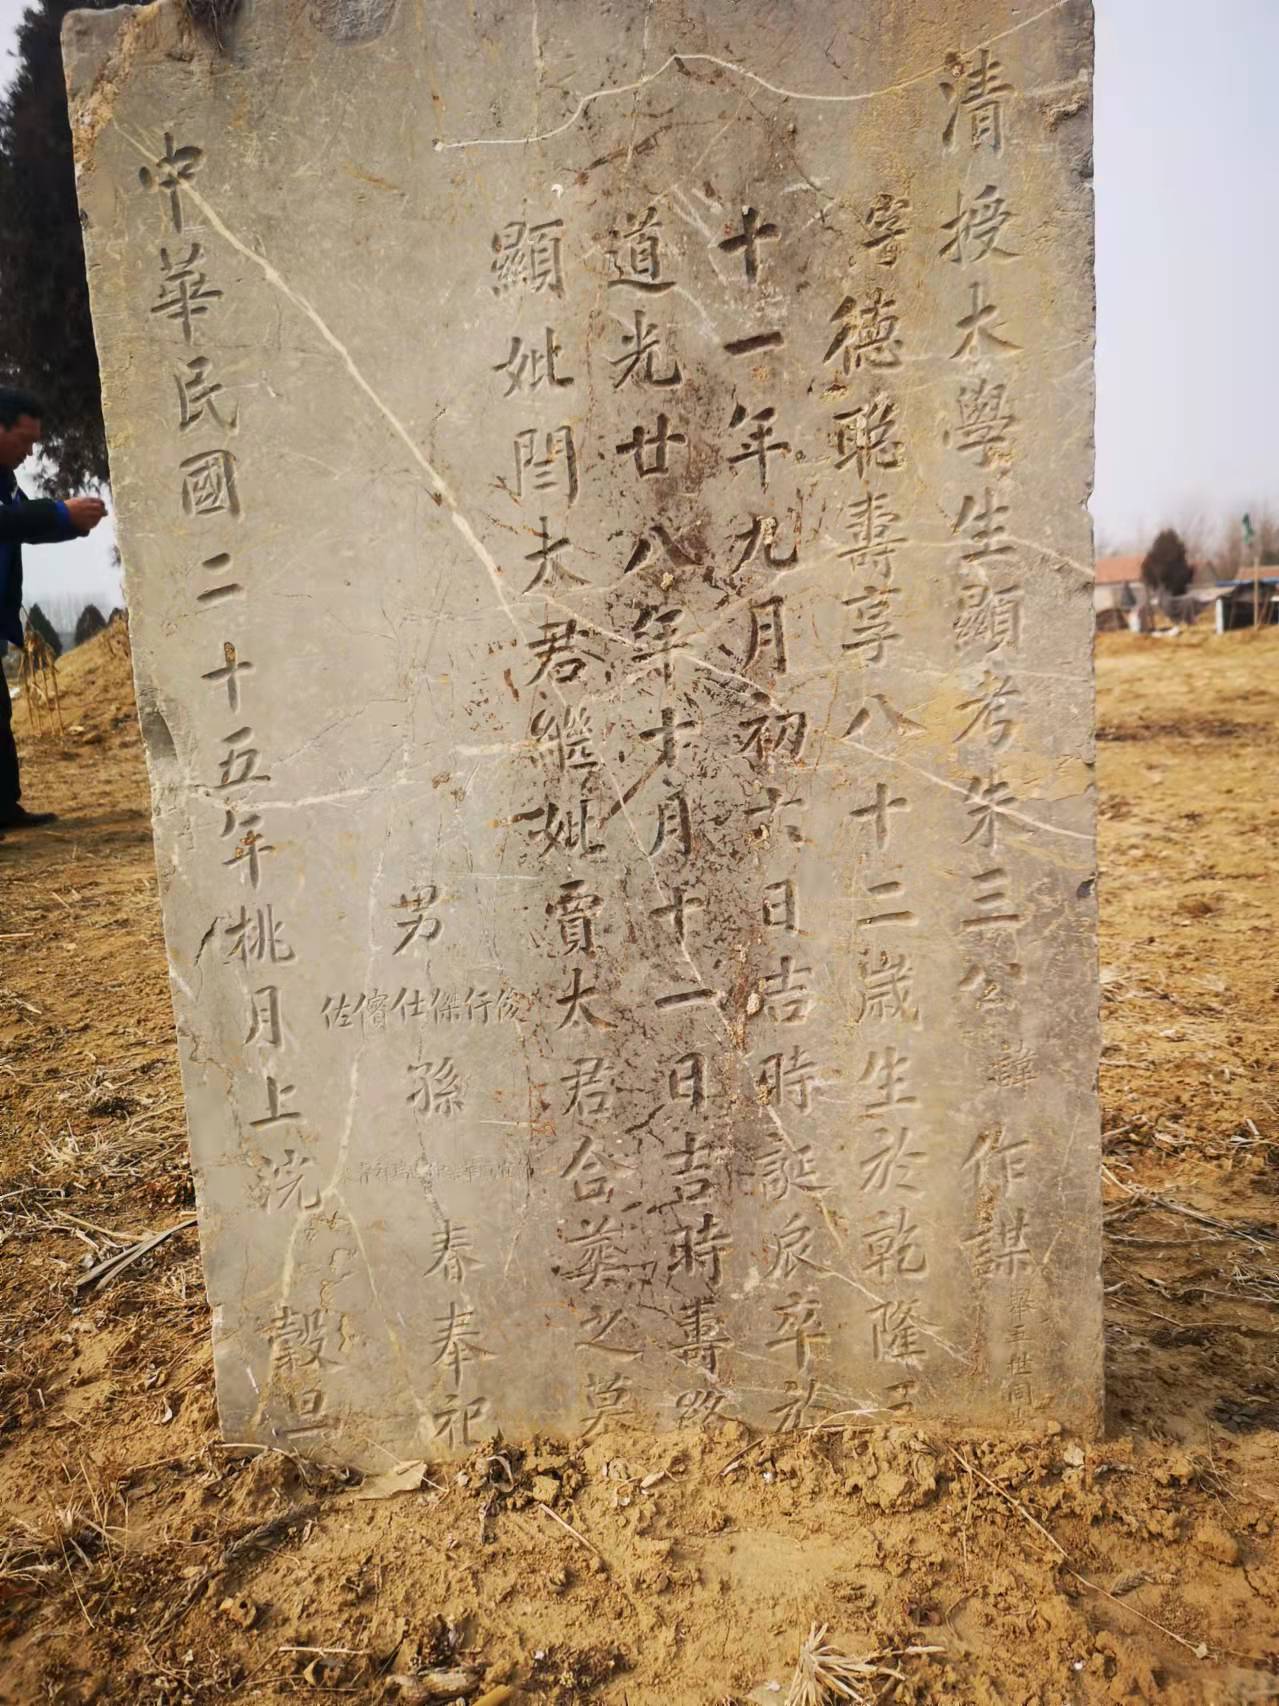 清授太學生顯考朱三公諱作謀舉五世同
字德聰壽享八十二歲生於乾隆三
十一年九月初六日吉時誕辰卒於
道光廿八年十月十一日吉時壽終
顯妣閆太君繼妣賈太君合葬之墓
男俊行傑仕儐佐孫春奉祀
中華民國二十五年桃月上浣穀旦